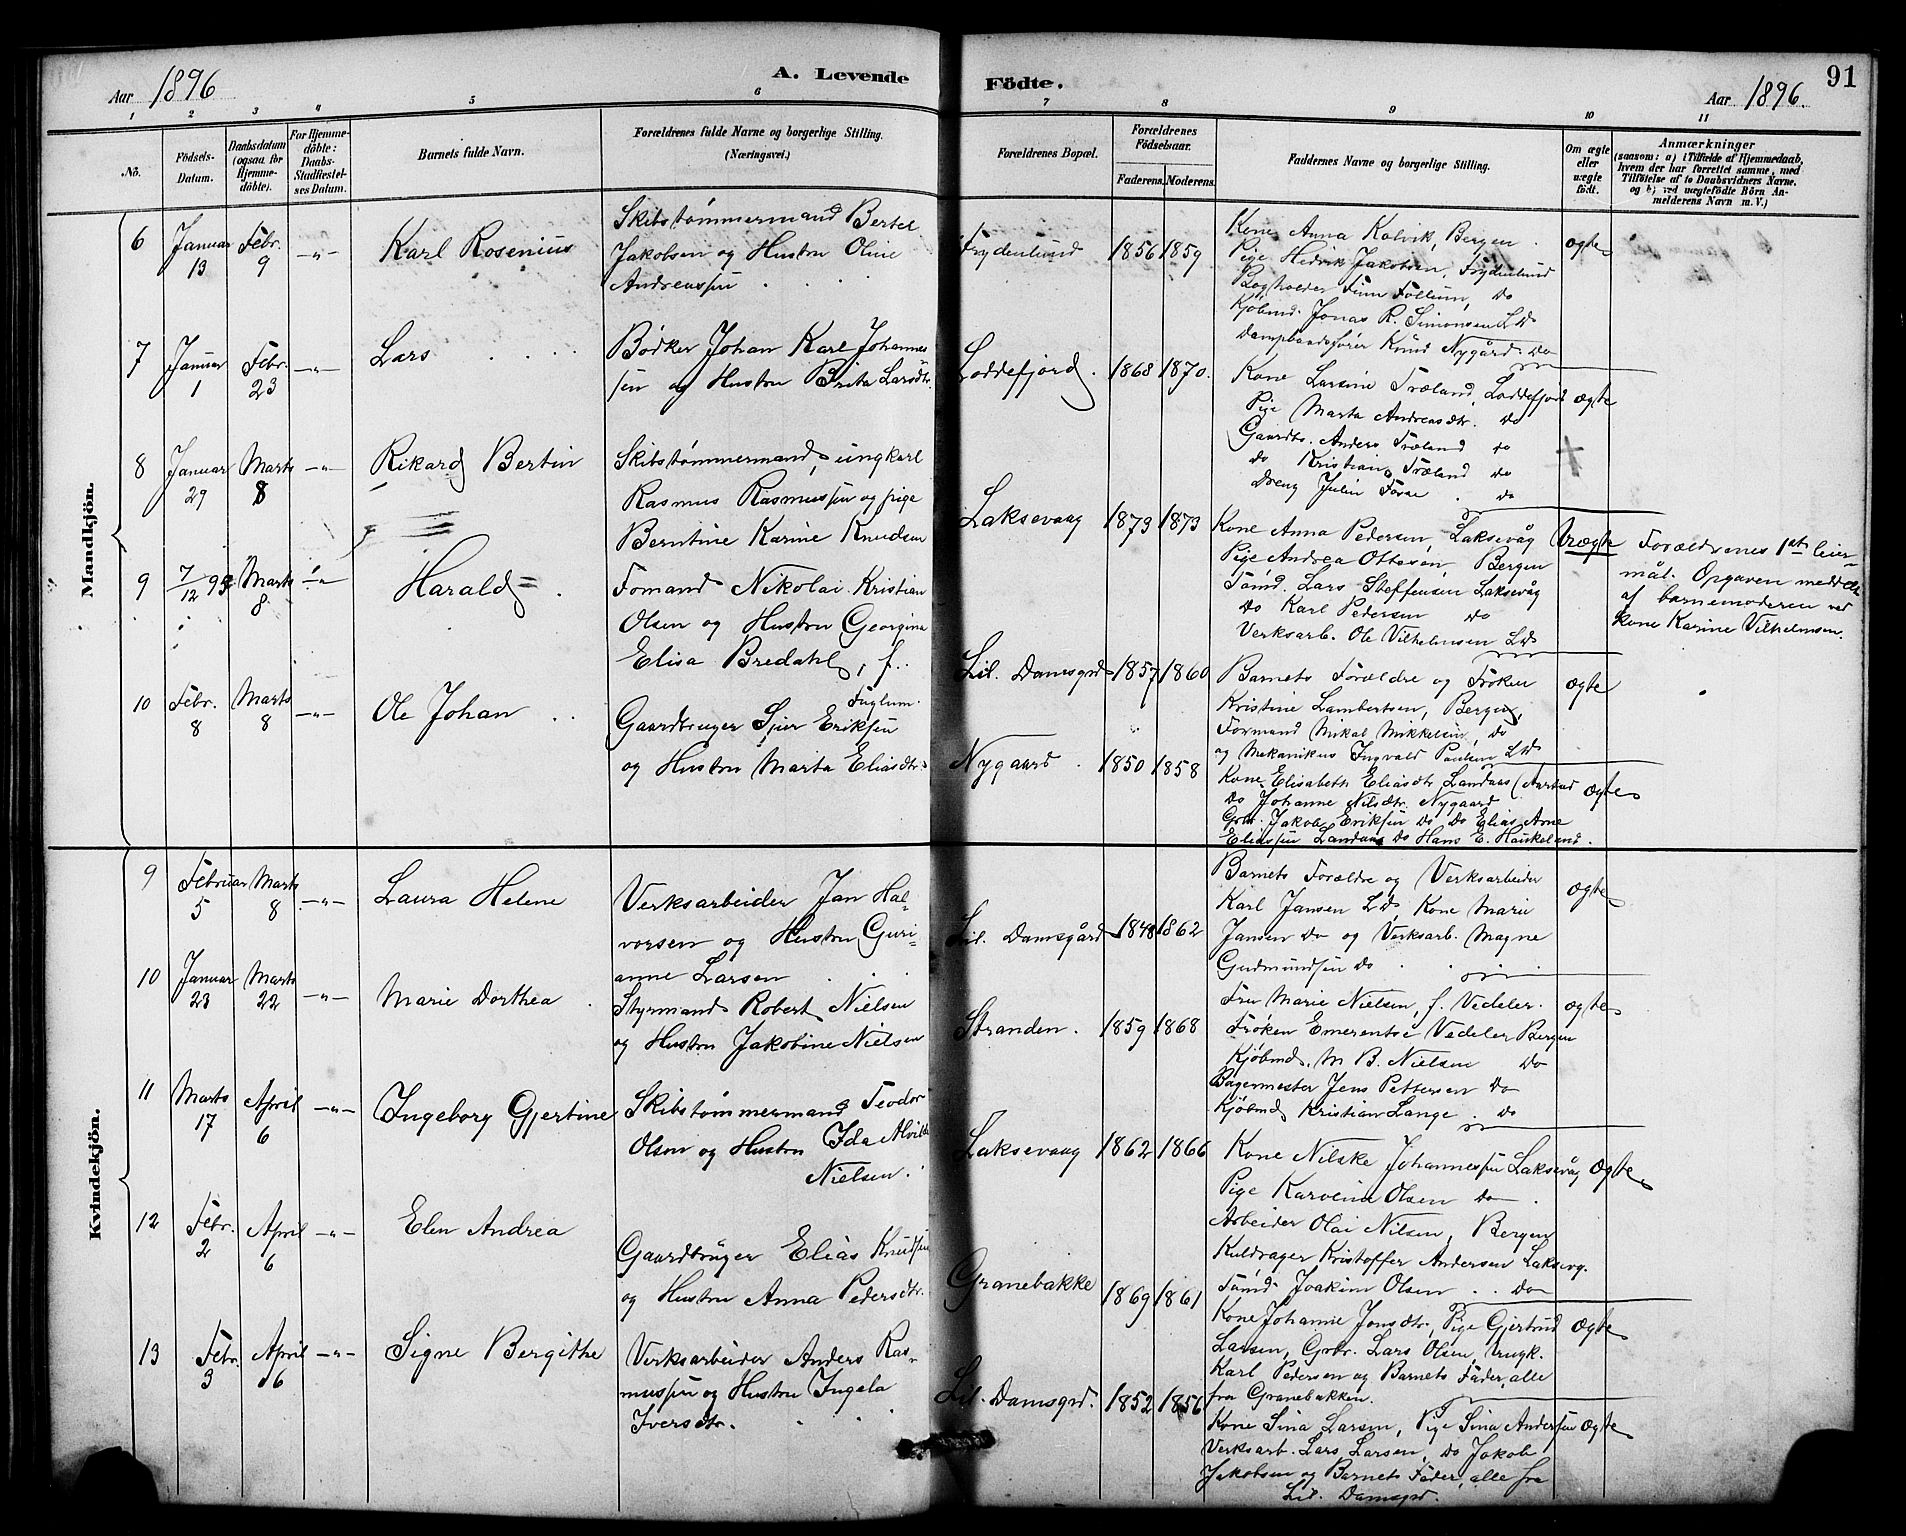 Aar 1896
A. Levende
Födte.
Aar 1896.
91
1 2 3 4 5 6 7 8 9 10 11
No.
Födsels-Datum.
Daabsdatum (ogsaa for Hjemme-döbte).
For Hjemme-döbte: Daabs-Stadfæstel-ses Datum.
Barnets fulde Navn.
Forældrenes fulde Navne og borgerlige Stilling.
(Næringsvei.)
Forældrenes Bopæl.
Forældrenes Födselsaar.
Faderens. Moderens.
Faddernes Navne og borgerlige Stilling.
Om ægte eller uægte födt.
Anmærkninger
(saasom: a) i Tilfælde af Hjemmedaab,
hvem der har forrettet samme, med
Tilföielse af to Daabsvidners Navne,
og b) ved uægtefödte Börn An-
melderens Navn m. V.)
Mandkjön.
6 Januar 13 Febr. 9 -"- Karl Rosenius
Skibstømmermand Bertel
Jakobsen og Hustru Oline
Andreassen
Frydenlund 1856 1859
Kone Anna Kalvik, Bergen
Pige Hedvik Jakobsen, Frydenlund
Bogholder Finn Follum, Do
Kjøbmd. Jonas R. Simonsen LD
Dampbaadsfører Knud Nygård Do
Ægte
7 Januar 1 Febr. 23 -"- Lars
Bødker Johan Karl Johannes-
sen og Hustru Brita Larsdtr.
Loddefjord. 1868 1870.
Kone Larsine Træland, Loddefjord
Pige Marta Andreasdtr. do
Gaardbr. Anders Træland do
do Kristian Træland do
Dreng Julin do
Ægte
8 Januar 29 Marts 8 -"- Rikard Bertin
Skibstømmermand, ungkarl
Rasmus Rasmussen og pige
Berntine Karine Knudsen
Laksevaag 1873 1873
Kone Anna Pedersen, Laksevåg
Pige Andrea Ottesen, Bergen
Tømd. Lars Steffensen Laksevåg
Do Karl Pedersen do
Verksarb. Ole Vilhelmsen LD
Uægte
Forældrenes 1ste leier-
mål. Opgaven meddelt
af barnemoderen ved
kone Karine Vilhelmsen.
9 7/12 95 Marts 8 -"- Harald
Formand Nikolai Kristian
Olsen og Hustru Georgina
Elisa Bredahl, f.
Fuglum.
Lil. Damsgrd 1857 1860
Barnets Forældre og Frøken
Kristine Lambertsen, Bergen,
Formand Mikal Mikkelsen, do
og Mekanikus Ingvald Paulsen LD
Ægte
10 Febr. 8 Marts 8 -"- Ole Johan
Gaardbruger Sjur Eriksen
og Hustru Marta Eliasdtr.
Nygaard 1850 1858
Kone Elisabeth Eliasdtr. Landaas (Aarstad
Do Johanne Nilsdtr. Nygaard
Grbr. Jakob Eriksen Do Do Elias Arne
Eliassen Landaas Do Hans E. Haukeland.
Ægte
Kvindekjön.
9 Februar 5 Marts 8 -"- Laura Helene
Verksarbeider Jan Hal-
vorsen og Hustru Guri-
anne Larsen
Lil. Damsgård 1848 1862
Barnets Forældre og Verksarbeider
Karl Jansen LD, Kone Marie
Jansen Do og Verksarb. Magne
Gudmundsen Do
Ægte
10 Januar 23 Marts 22 -"- Marie Dorthea
Styrmand Robert Nielsen
og Hustru Jakobine Nielsen
Stranden. 1859 1868
Fru Marie Nielsen, f. Vedeler.
Frøken Emerentse Vedeler Bergen
Kjøbmd. M B. Nielsen Do
Bagermester Jens Pettersen Do
Kjøbmd Kristian Lange. Do
Ægte
11 Marts 17 April 6 -"- Ingeborg Gjertine
Skibstømmermand Teodor
Olsen og Hustru Ida Alvilde
Nielsen.
Laksevaag 1862 1866
Kone Nilske Johannessen Laksevåg
Pige Karoline Olsen Do
Arbeider Olai Nilsen, Bergen
Kuldrager Kristoffer Andersen Laksevg.
Tømd. Joakim Olsen Do
Ægte
12 Febr. 2 April 6 -"- Elen Andrea
Gaardbruger Elias Knudsen
og Hustru Anna Pedersdtr.
Granebakke 1869 1861
Kone Johanne Jonsdtr., Pige Gjertrud
Larsen, Grbr. Lars Olsen, Ungk.
Karl Pedersen og Barnets Fader, alle
fra Granebakken.
Ægte
13 Febr. 3 April 6 -"- Signe Bergithe
Verksarbeider Anders Ras-
mussen og Hustru Ingela
Iversdtr.
Lil. Damsgrd. 1852 1856
Kone Sina Larsen, Pige Sina Andersen
Verksarb. Lars Larsen, do Jakob
Jakobsen og Barnets Fader, alle fra
Lil. Damsgrd.
Ægte